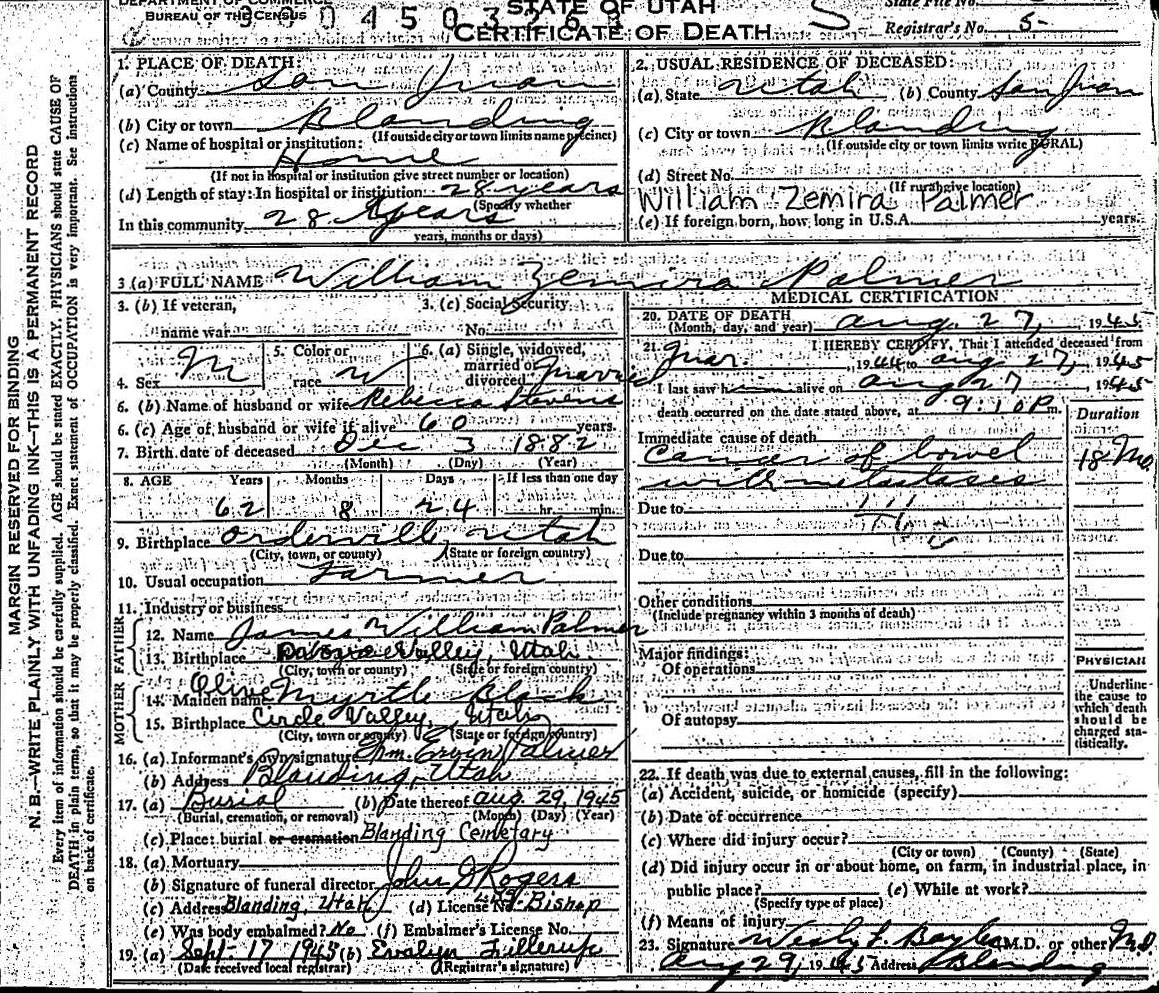 DEPARTMENT OF COMMERCE
BUREAU OF THE CENSUS
STATE OF UTAH
CERTIFICATE OF DEATH
State File No.
Registrar's No. 5
MARGIN RESERVED FOR BINDING
N. B.—WRITE PLAINLY WITH UNFADING INK—THIS IS A PERMANENT RECORD
Every item of information should be carefully supplied. AGE should be stated EXACTLY. PHYSICIANS should state CAUSE OF
DEATH in plain terms, so that it may be properly classified. Exact statement of OCCUPATION is very important. See instructions
on back of certificate.
1. PLACE OF DEATH:
(a) County San Juan
(b) City or town Blanding
(If outside city or town limits name precinct)
(c) Name of hospital or institution:
Home
(If not in hospital or institution give street number or location)
(d) Length of stay: In hospital or institution: 28 years
(Specify whether
In this community 28 years
years, months or days)
2. USUAL RESIDENCE OF DECEASED:
(a) State Utah (b) County San Juan
(c) City or town Blanding
(If outside city or town limits write RURAL)
(d) Street No.
(If rural give location)
William Zemira Palmer
(e) If foreign born, how long in U.S.A. years.
3 (a) FULL NAME William Zemira Palmer
3. (b) If veteran,
name war
3. (c) Social Security
No.
4. Sex M
5. Color or
race W
6. (a) Single, widowed,
married or
divorced married
6. (b) Name of husband or wife Rebecca Stevens
6. (c) Age of husband or wife if alive 60 years.
7. Birth date of deceased Dec 3 1882
(Month) (Day) (Year)
8. AGE Years Months Days If less than one day
62 8 24 hr. min.
9. Birthplace Orderville Utah
(City, town, or county) (State or foreign country)
10. Usual occupation Farmer
11. Industry or business
FATHER
12. Name James William Palmer
13. Birthplace Valley, Utah
(City, town or county) (State or foreign country)
MOTHER
Olive
14. Maiden name Myrtle Black
15. Birthplace Circle Valley, Utah
(City, town or county) (State or foreign country)
16. (a) Informant's own signature Wm. Ervin Palmer
(b) Address Blanding, Utah
17. (a) Burial (b) Date thereof Aug. 29, 1945
(Burial, cremation, or removal) (Month) (Day) (Year)
(c) Place: burial or cremation Blanding Cemetary
18. (a) Mortuary
(b) Signature of funeral director John D Rogers
(c) Address Blanding, Utah (d) License No. Bishop
(e) Was body embalmed? No (f) Embalmer's License No.
19. (a) Sept. 17 1945 (b) Evalyn Fillerup
(Date received local registrar) (Registrar's signature)
MEDICAL CERTIFICATION
20. DATE OF DEATH
(Month, day, and year) Aug. 27, 1945
21. I HEREBY CERTIFY, That I attended deceased from
Mar. , 1944 to Aug 27, 1945
I last saw h alive on Aug 27 1945
death occurred on the date stated above, at 9:10 P m.
Duration
Immediate cause of death
Cancer of bowel 18 Mo.
with metastases
Due to
Due to
Other conditions
(Include pregnancy within 3 months of death)
Major findings:
Of operations
Of autopsy
PHYSICIAN
Underline
the cause to
which death
should be
charged sta-
tistically.
22. If death was due to external causes, fill in the following:
(a) Accident, suicide, or homicide (specify)
(b) Date of occurrence
(c) Where did injury occur?
(City or town) (County) (State)
(d) Did injury occur in or about home, on farm, in industrial place, in
public place? (e) While at work?
(Specify type of place)
(f) Means of injury
23. Signature Wesly L. Bayles M.D. or other M.D.
Aug 29, 1945 Address Blanding